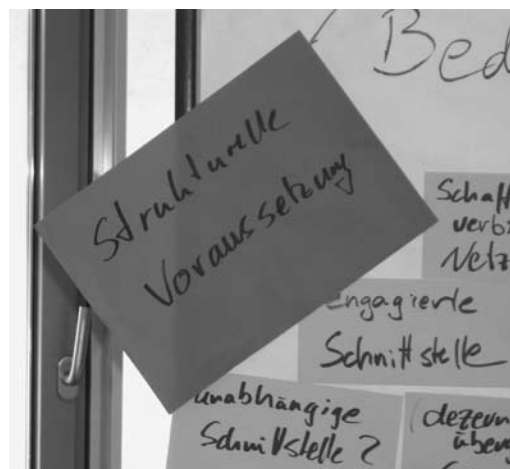 / Bed
Strukturelle
Voraussetzung
Schaff
verb
Netz
engagierte
Schnittstelle
unabhängige
Schnittstelle ?
(dezern
überg